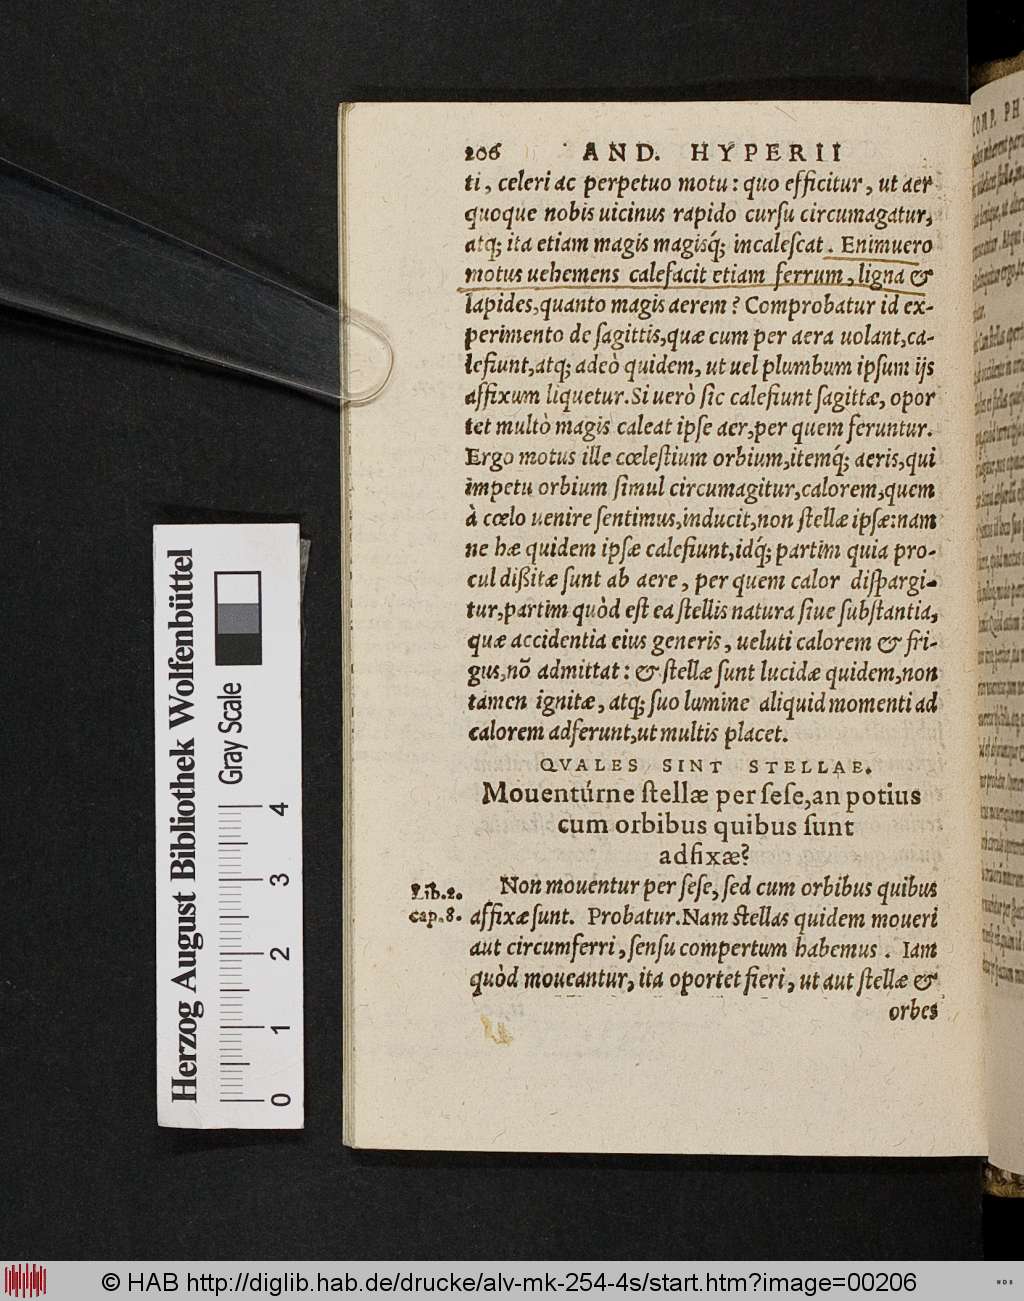 206 AND. HYPERII
ti, celeri ac perpetuo motu: quo efficitur, ut aer
quoque nobis uicinus rapido curſu circumagatur,
atq; ita etiam magis magisq́; incaleſcat. Enimuero
motus uehemens calefacit etiam ferrum, ligna &
lapides, quanto magis aerem? Comprobatur id ex-
perimento de ſagittis, quæ cum per aera uolant, ca-
lefiunt, atq; adeò quidem, ut uel plumbum ipſum ijs
affixum liquetur. Si uerò ſic calefiunt ſagittæ, opor
tet multò magis caleat ipſe aer, per quem feruntur.
Ergo motus ille cœleſtium orbium, itemq́; aeris, qui
impetu orbium ſimul circumagitur, calorem, quem
à cœlo uenire ſentimus, inducit, non ſtellæ ipſæ: nam
ne hæ quidem ipſæ calefiunt, idq́; partim quia pro-
cul diſsitæ ſunt ab aere, per quem calor diſpargi-
tur, partim quòd eſt ea ſtellis natura ſiue ſubſtantia,
quæ accidentia eius generis, ueluti calorem & fri-
gus, nõ admittat: & ſtellæ ſunt lucidæ quidem, non
tamen ignitæ, atq; ſuo lumine aliquid momenti ad
calorem adferunt, ut multis placet.
QVALES SINT STELLAE.
Mouentúrne ſtellæ per ſeſe, an potius
cum orbibus quibus ſunt
adfixæ?
Non mouentur per ſeſe, ſed cum orbibus quibus
Lib. 2.
cap. 8.
affixæ ſunt. Probatur. Nam ſtellas quidem moueri
aut circumferri, ſenſu compertum habemus. Iam
quòd moueantur, ita oportet fieri, ut aut ſtellæ &
orbes
COMP. PH
Herzog August Bibliothek Wolfenbüttel
Gray Scale
0 1 2 3 4
© HAB http://diglib.hab.de/drucke/alv-mk-254-4s/start.htm?image=00206